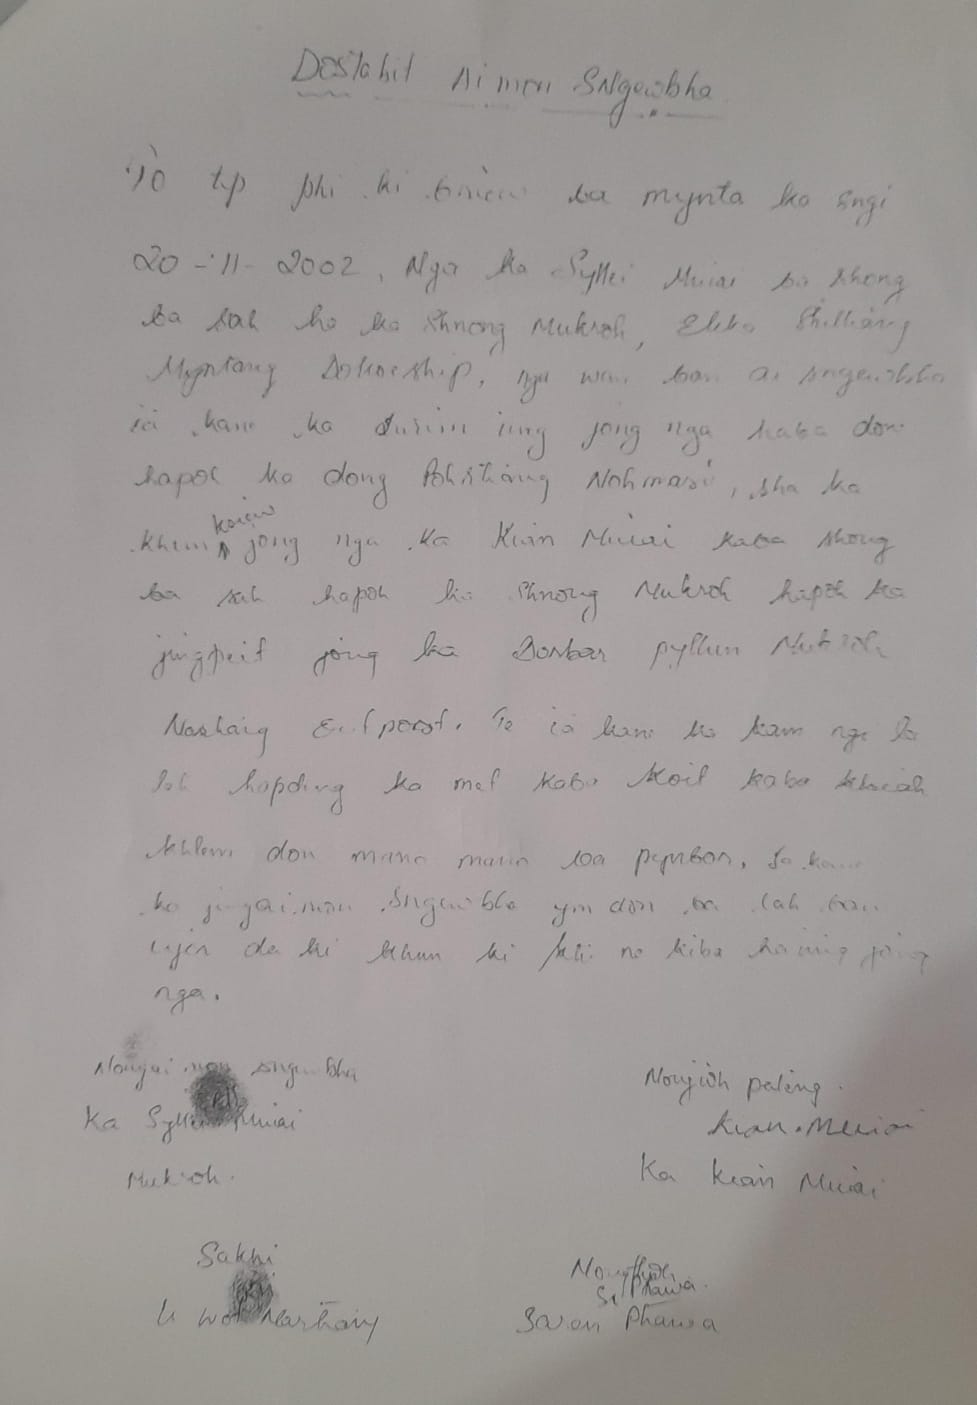 Dostahit Ai mon Sngewbha
To tip phi ki briew ba mynta ka sngi
20-11-2002, Nga ka Syllei Muiai ba shong
ba sah ha ka Shnong Mukroh, Elka Shilliang
Myntang Doloiship, nga wan ban ai sngewbha
ia kane ka dulir iing jong nga kaba don
hapoh ka dong Pohshang Nohmasi, sha ka
khun koiew jong nga Ka Kian Muiai kaba shong
ba sah hapoh ka Shnong Mukroh hapoh ka
jingpeit jong ka Dorbar pyllun Mukroh
Narhang. Te ia kane ka kam nga la
loh hapdeng ka met kaba koit kaba khiah
khlem don mano mano ba pynbor, ia kane
ka jingai mon Sngewbha ym don ba lah ban
ujen da ki khun ki ksi ne kiba haiing jong
nga.
Nongai mon sngewbha
Ka Syllei Muiai
Mukroh.
Nongioh paling.
Kian. Muiai
Ka Kian Muiai
Sakhi
U Wot Narhang
Nongthoh
Sd/Phawa.
Baven Phawa